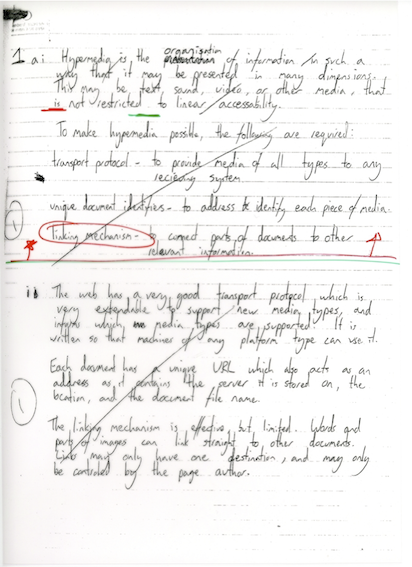 1 a i Hypermedia is the organisation of information in such a
way that it may be presented in many dimensions.
This may be text, sound, video, or other media, that
is not restricted to linear accessability.
To make hypermedia possible, the following are required:
transport protocol - to provide media of all types to any
recieving system
unique document identifiers - to address & identify each piece of media.
linking mechanism - to connect parts of documents to other
relevant information.
ii The web has a very good transport protocol which is
very extendable to support new media types, and
informs which media types are supported. It is
written so that machines of any platform type can use it.
Each document has a unique URL which also acts as an
address as it contains the server it is stored on, the
location, and the document file name.
The linking mechanism is effective but limited. Words and
parts of images can link straight to other documents.
Links may only have one destination, and may only
be controled by the page author.